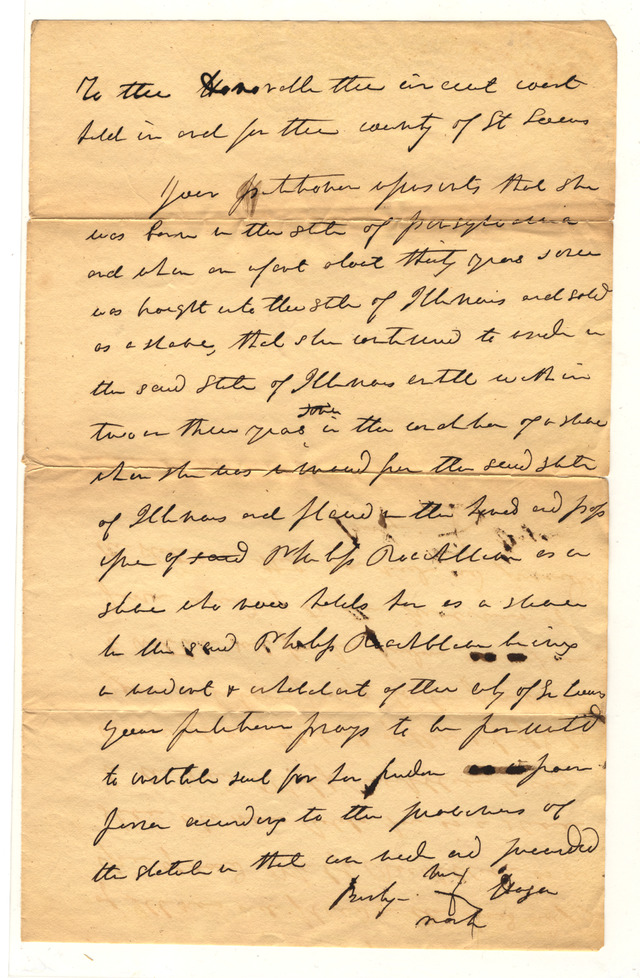 To the Honorable the circuit court
held in and for the county of St Louis
Your petitioner represents that she
was born in the state of pensylvania
and when an infant about thirty years since
was brought into the state of Illinois and sold
as a slave, that she continued to reside in
the said state of Illinois untill within
two or three years since in the condition of a slave
when she was removed from the said state
of Illinois and placed in the hands and poss
of said Philip Rocheblave as a
slave who now holds her as a slave
he the said Philip Rocheblave being
a resident & inhabitant of the city of St Louis
your petitioner prays to be permitted
to institute suit for her freedom as a poor
person according to the provisions of
the statute in that case made and provided
her
Hagar
mark